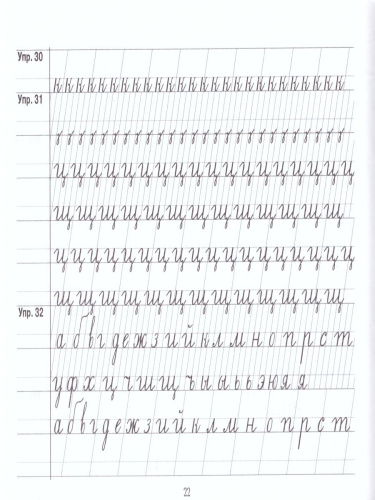 Упр. 30
к к к к к к к к к к к к к к к к к к к к к к к к к к
Упр. 31
ц ц ц ц ц ц ц ц ц ц ц ц ц ц ц ц ц
щ щ щ щ щ щ щ щ щ щ щ щ щ щ
ц ц ц ц ц ц ц ц ц ц ц ц ц ц ц ц ц
щ щ щ щ щ щ щ щ щ щ щ щ щ щ
Упр. 32
а б в г д е ж з и й к л м н о п р с т
у ф х ц ч ш щ ъ ы ы ь ь э ю я я
а б в г д е ж з и й к л м н о п р с т
22